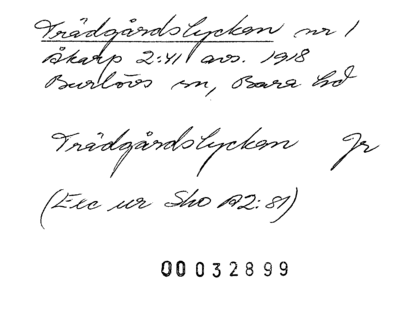 Trädgårdslyckan nr 1
Åkarp 2:41 avs. 1918
Burlövs sn, Bara hd
Trädgårdslyckan Jr
(Exc ur Sko A2:81)
00032899